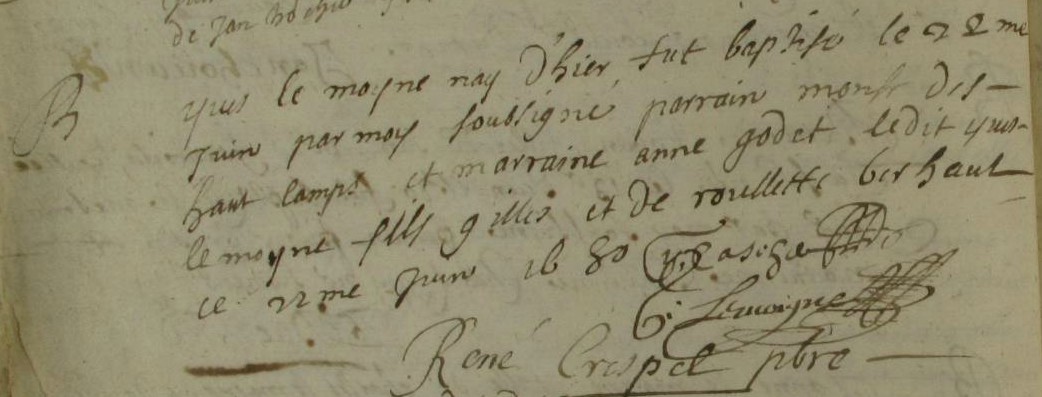 de Jan
B
yves le moyne nay d'hier fut baptisé le 22me
Juin par moy soubsigné parrain mons des-
haut lamps et marraine anne godet ledit yves-
le moyne fils gilles et de roullette berhaut
ce 22me Juin 1680
G: Lemoigne
René Crespel pbre